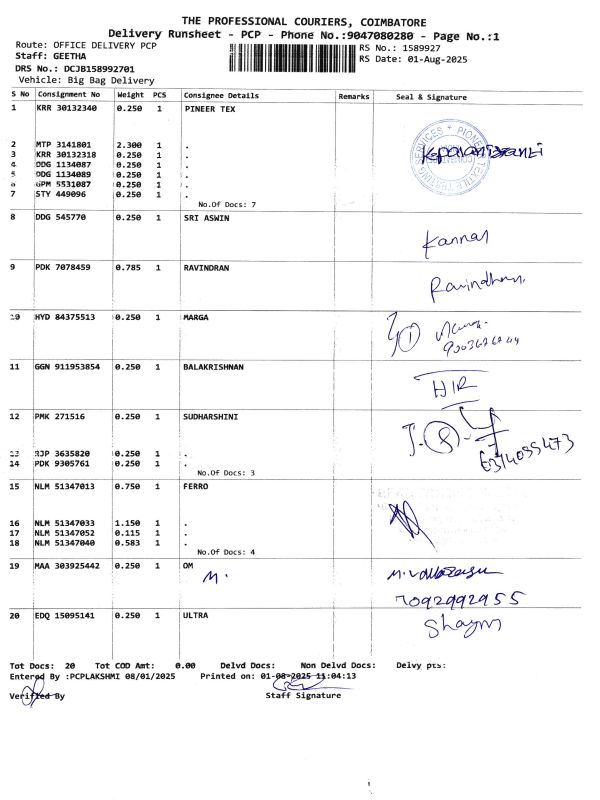 THE PROFESSIONAL COURIERS, COIMBATORE
Delivery Runsheet - PCP - Phone No.:9047080280 - Page No.:1
Route: OFFICE DELIVERY PCP
RS No.: 1589927
Staff: GEETHA
RS Date: 01-Aug-2025
DRS No.: DCJB158992701
Vehicle: Big Bag Delivery
S No Consignment No Weight PCS Consignee Details Remarks Seal & Signature
1 KRR 30132340 0.250 1 PINEER TEX
2 MTP 3141801 2.300 1 .
3 KRR 30132318 0.250 1 .
4 DDG 1134087 0.250 1 .
5 DDG 1134089 0.250 1 .
6 GPM 5531087 0.250 1 .
7 STY 449096 0.250 1 .
No.Of Docs: 7
8 DDG 545770 0.250 1 SRI ASWIN
Kannan
9 PDK 7078459 0.785 1 RAVINDRAN
Ravindhran.
10 HYD 84375513 0.250 1 MARGA
11 GGN 911953854 0.250 1 BALAKRISHNAN
12 PMK 271516 0.250 1 SUDHARSHINI
13 RJP 3635820 0.250 1 .
14 PDK 9305761 0.250 1 .
No.Of Docs: 3
15 NLM 51347013 0.750 1 FERRO
16 NLM 51347033 1.150 1 .
17 NLM 51347052 0.115 1 .
18 NLM 51347040 0.583 1 .
No.Of Docs: 4
19 MAA 303925442 0.250 1 OM
M.
7092992955
20 EDQ 15095141 0.250 1 ULTRA
Tot Docs: 20 Tot COD Amt: 0.00 Delvd Docs: Non Delvd Docs: Delvy pts:
Entered By :PCPLAKSHMI 08/01/2025 Printed on: 01-08-2025 11:04:13
Verified By Staff Signature